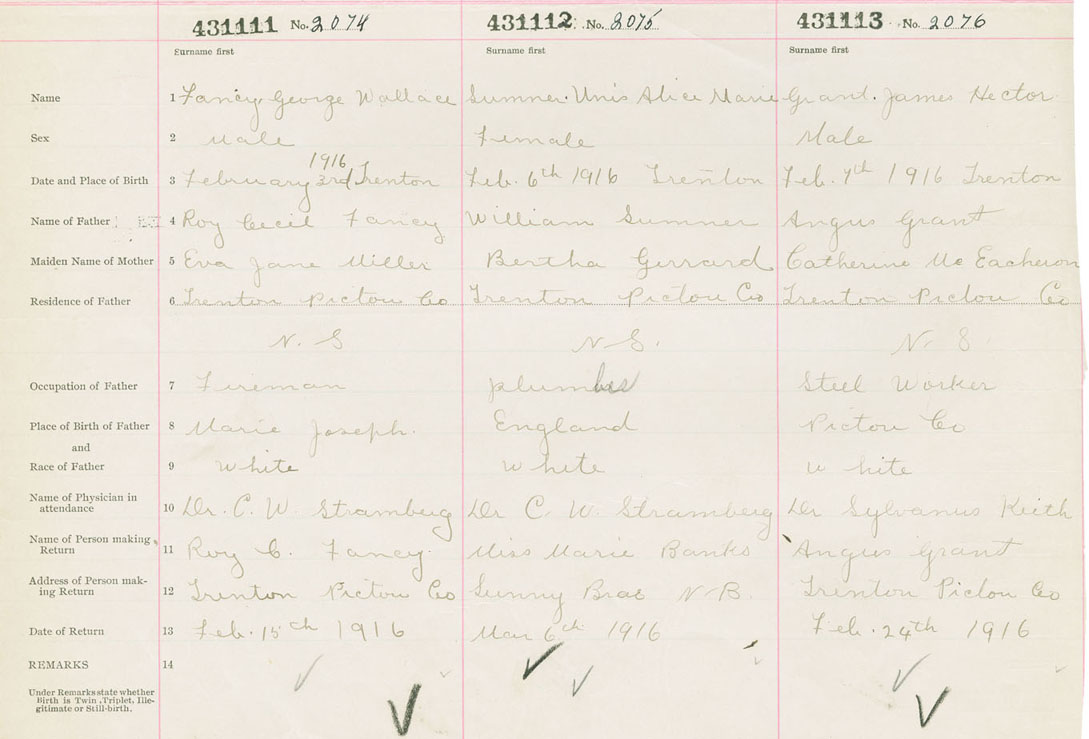 431111 No. 2074 431112 No. 2075 431113 No. 2076
Surname first Surname first Surname first
Name 1 Fancy, George Wallace Sumner. Unis Alice Marie Grant. James Hector
Sex 2 Male Female Male
1916
Date and Place of Birth 3 February 3rd Trenton Feb. 6th 1916 Trenton Feb. 7th 1916 Trenton
Name of Father 4 Roy Cecil Fancy William Sumner Angus Grant
Maiden Name of Mother 5 Eva Jane Miller Bertha Gerrard Catherine Mc Eacheron
Residence of Father 6 Trenton Pictou Co Trenton Pictou Co Trenton Pictou Co
N. S N S. N. S
Occupation of Father 7 Fireman plumber Steel Worker
Place of Birth of Father 8 Marie Joseph. England Pictou Co
and
Race of Father 9 White White White
Name of Physician in
attendance 10 Dr. C. W. Stramberg Dr C. W. Stramberg Dr Sylvanus Keith
Name of Person making
Return 11 Roy C. Fancy. Miss Marie Banks Angus Grant
Address of Person mak-
ing Return 12 Trenton Pictou Co Sunny Brae N. B. Trenton Pictou Co
Date of Return 13 Feb. 15th 1916 Mar 6th 1916 Feb. 24th 1916
REMARKS 14
Under Remarks state whether
Birth is Twin, Triplet, Ille-
gitimate or Still-birth.